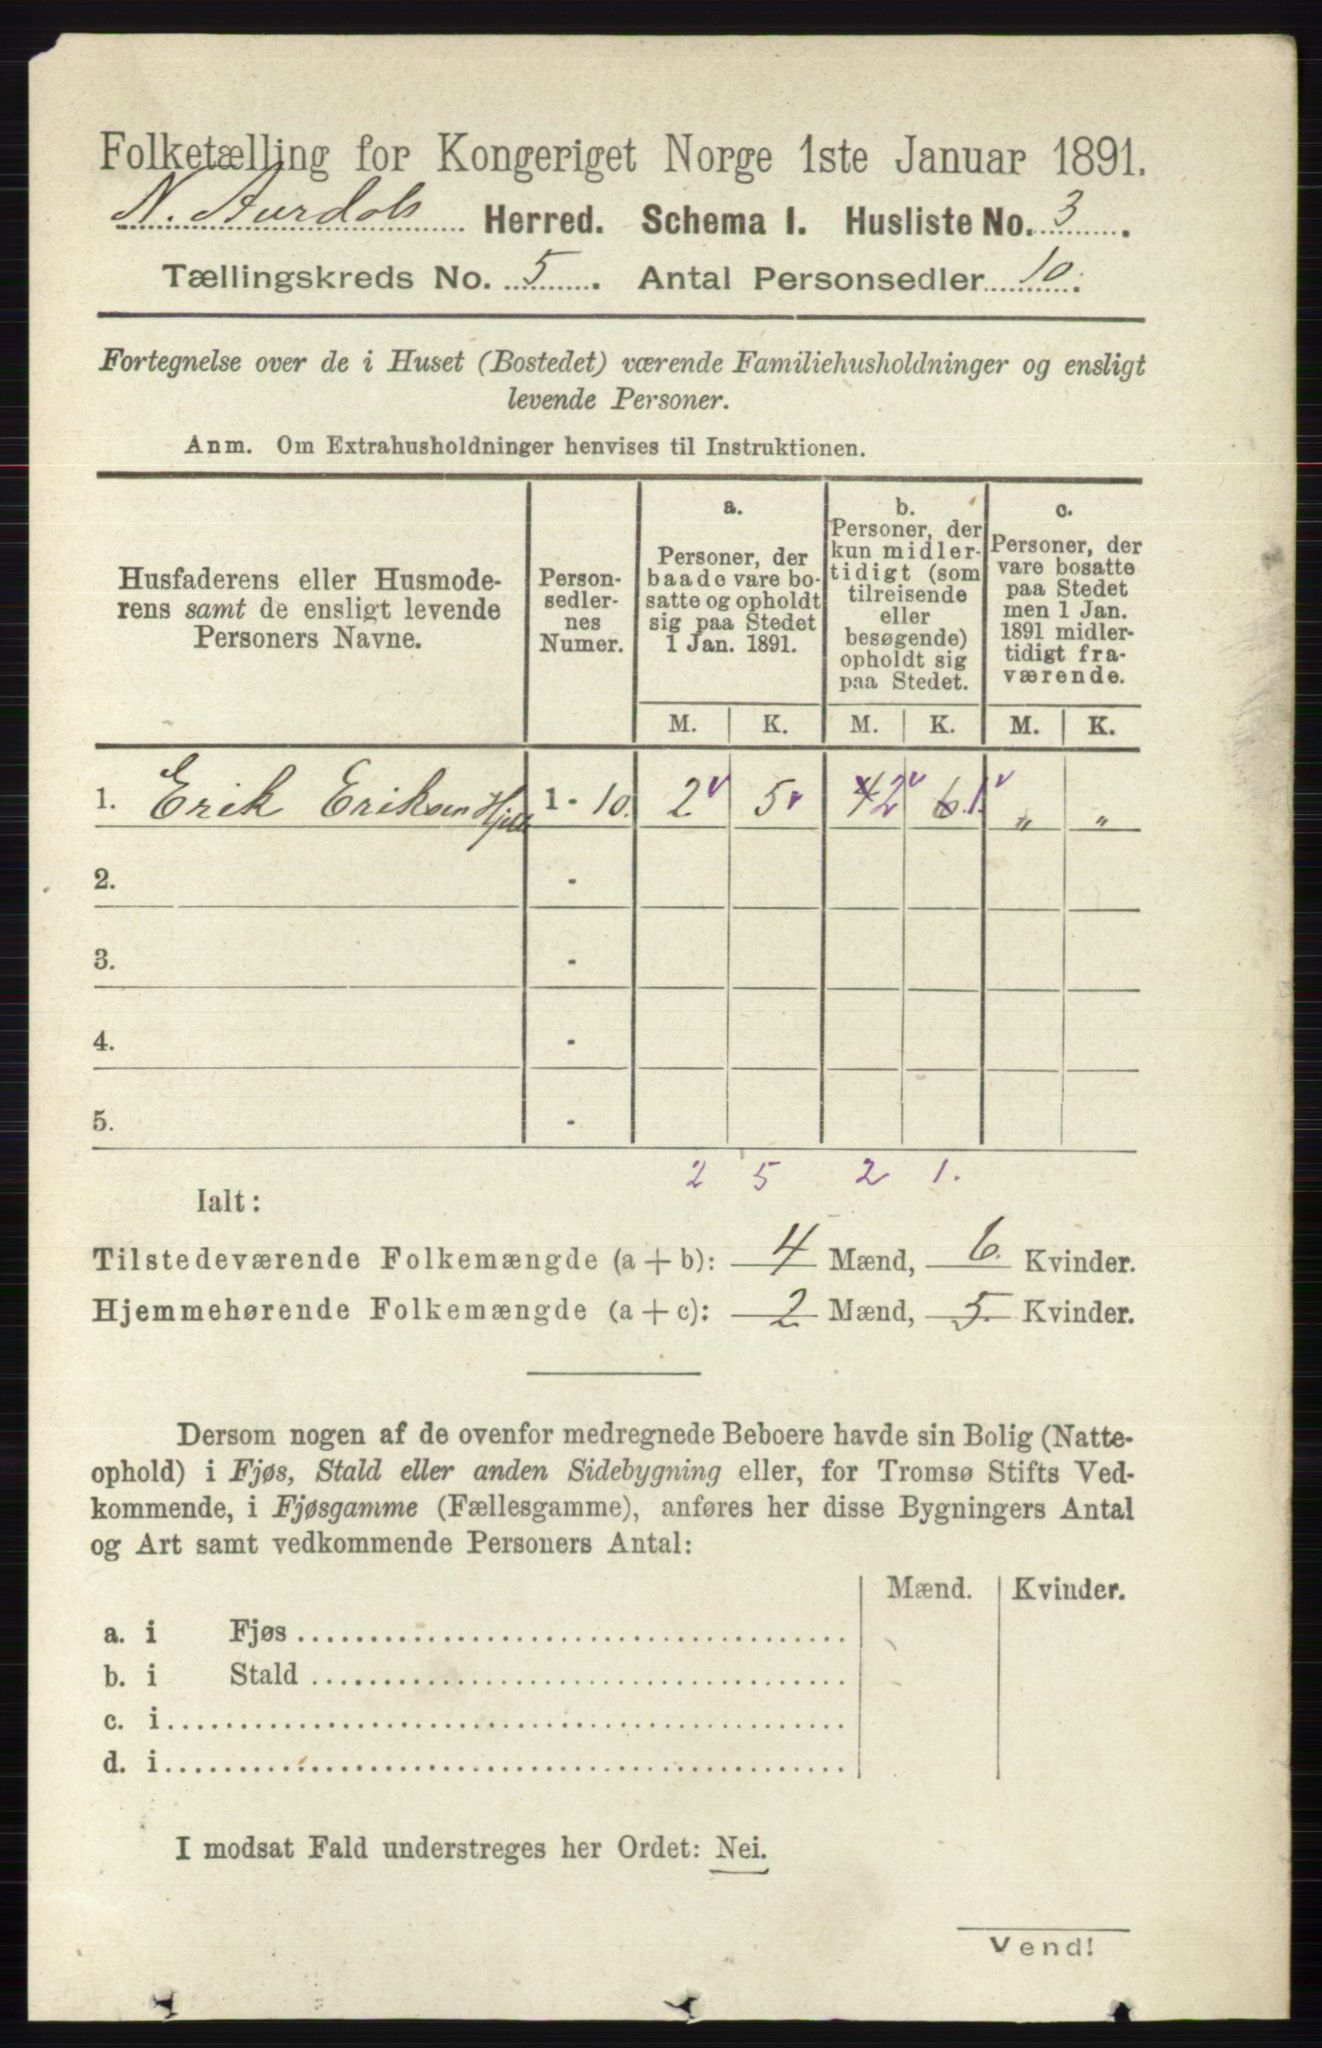 Folketælling for Kongeriget Norge 1ste Januar 1891.
N. Aurdals Herred. Schema I. Husliste No. 3.
Tællingskreds No. 5. Antal Personsedler 10.
Fortegnelse over de i Huset (Bostedet) værende Familiehusholdninger og ensligt
levende Personer.
Anm. Om Extrahusholdninger henvises til Instruktionen.
Husfaderens eller Husmode-
rens samt de ensligt levende
Personers Navne.
Person-
sedler-
nes
Numer.
a.
Personer, der
baade vare bo-
satte og opholdt
sig paa Stedet
1 Jan. 1891.
b.
Personer, der
kun midler-
tidigt (som
tilreisende
eller
besøgende)
opholdt sig
paa Stedet.
c.
Personer, der
vare bosatte
paa Stedet
men 1 Jan.
1891 midler-
tidigt fra-
værende.
M. K. M. K. M. K.
1. Erik Eriksen 1 - 10. 2 5 4 2 6 1. " "
2. -
3. -
4. -
5. -
2 5 2 1.
Ialt:
Tilstedeværende Folkemængde (a + b): 4 Mænd, 6. Kvinder.
Hjemmehørende Folkemængde (a + c): 2 Mænd, 5. Kvinder.
Dersom nogen af de ovenfor medregnede Beboere havde sin Bolig (Natte-
ophold) i Fjøs, Stald eller anden Sidebygning eller, for Tromsø Stifts Ved-
kommende, i Fjøsgamme (Fællesgamme), anføres her disse Bygningers Antal
og Art samt vedkommende Personers Antal:
Mænd. Kvinder.
a. i Fjøs
b. i Stald
c. i
d. i
I modsat Fald understreges her Ordet: Nei.
Vend!